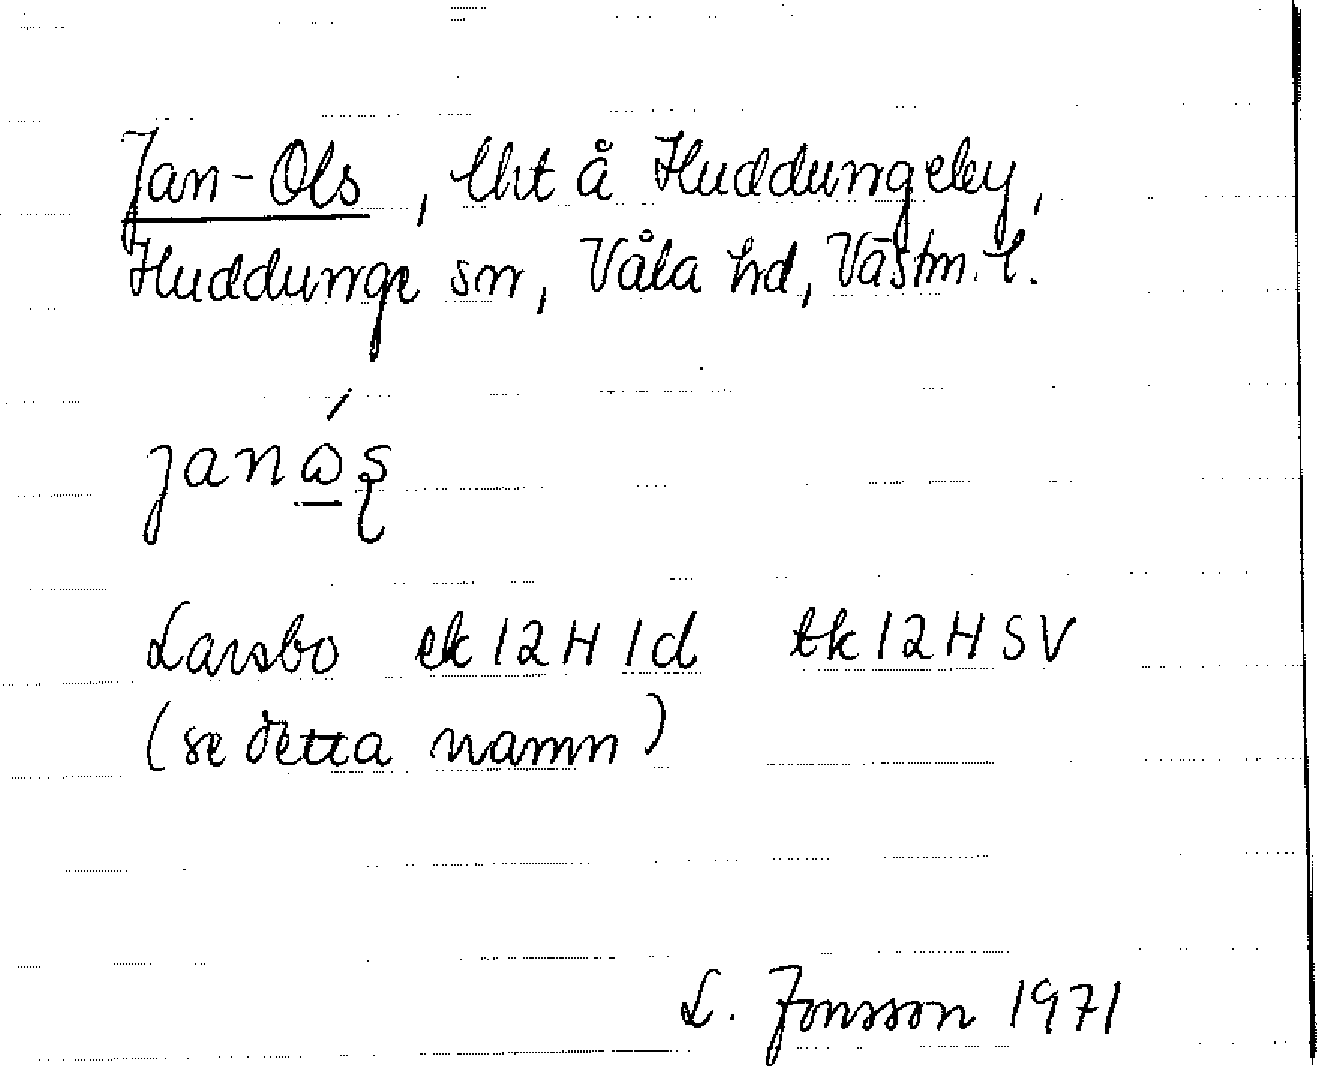 Jan-Ols, lht å Huddungeby,
Huddunge sn, Våla hd, Västm. l.
Larsbo ek 12H 1d tk 12H SV
(se detta namn)
L. Jonsson 1971